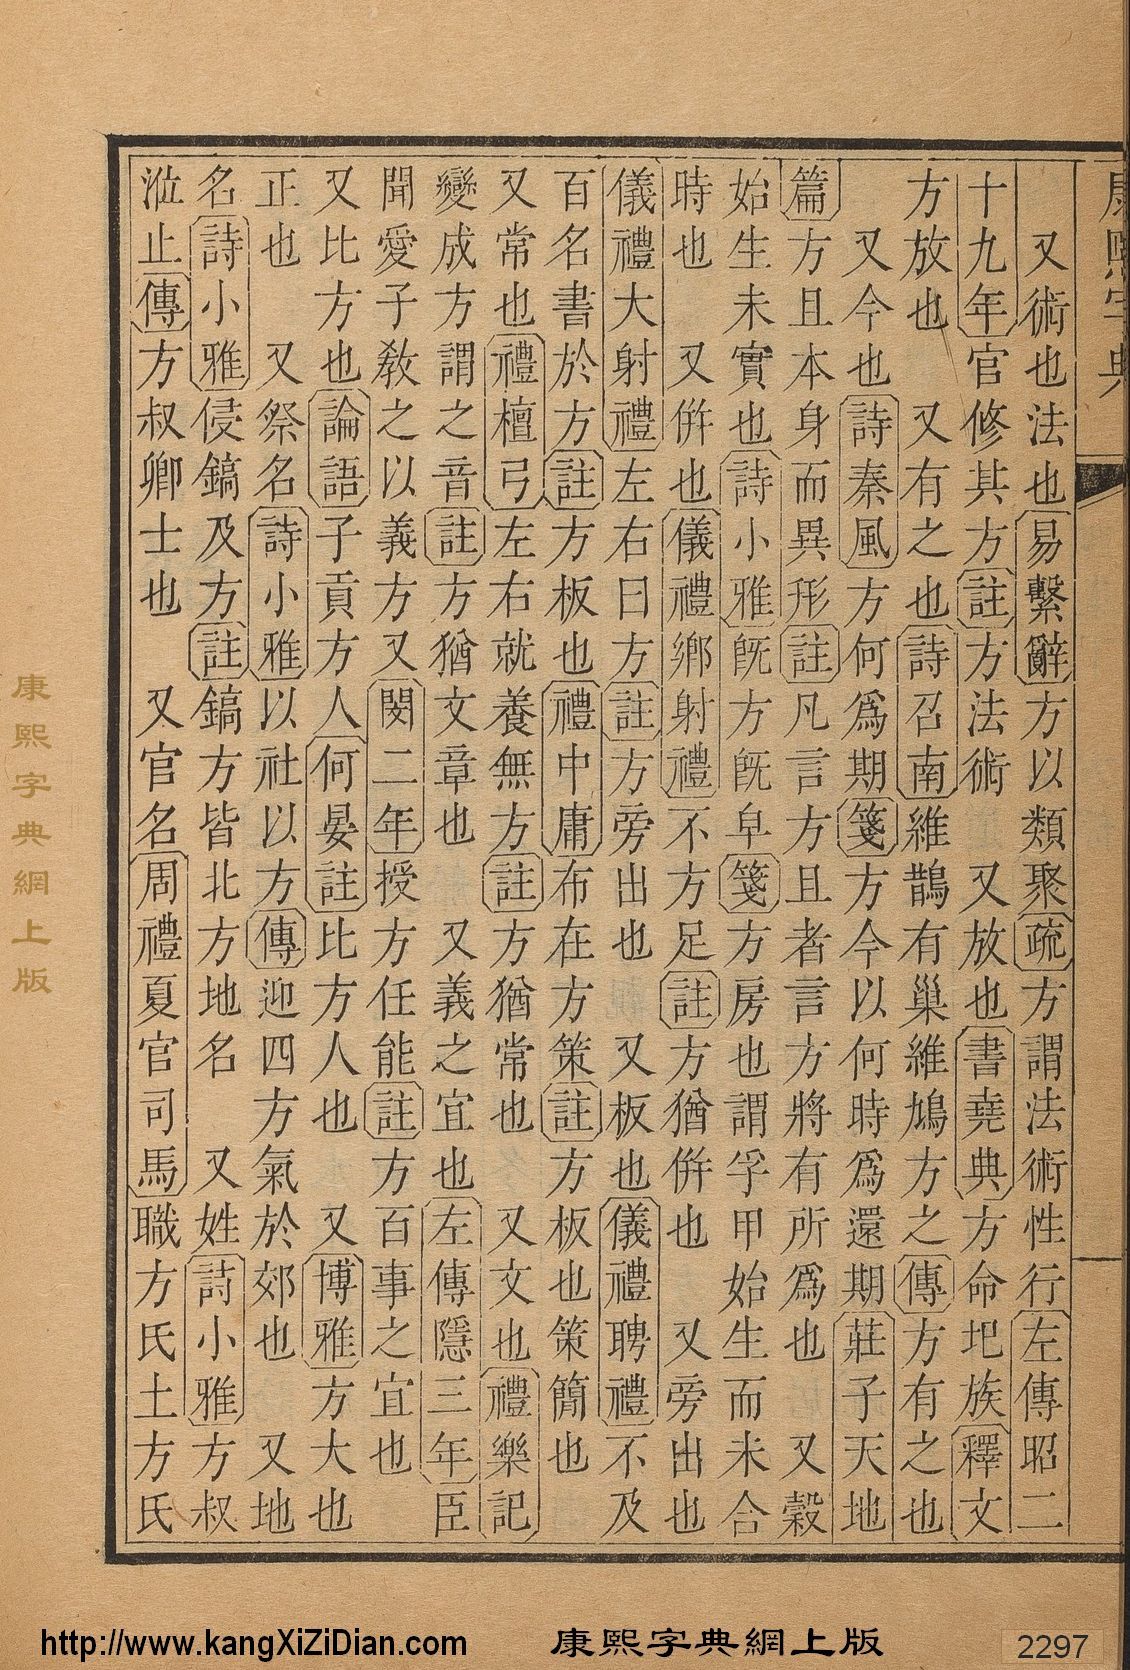 康熙字典
又術也法也易繫辭方以類聚疏方謂法術性行左傳昭二
十九年官修其方註方法術 又放也書堯典方命圯族釋文
方放也 又有之也詩召南維鵲有巢維鳩方之傳方有之也
又今也詩秦風方何爲期箋方今以何時爲還期莊子天地
篇方且本身而異形註凡言方且者言方將有所爲也 又穀
始生未實也詩小雅旣方旣皁箋方房也謂孚甲始生而未合
時也 又併也儀禮鄉射禮不方足註方猶併也 又旁出也
儀禮大射禮左右曰方註方旁出也 又板也儀禮聘禮不及
百名書於方註方板也禮中庸布在方策註方板也策簡也
又常也禮檀弓左右就養無方註方猶常也 又文也禮樂記
變成方謂之音註方猶文章也 又義之宜也左傳隱三年臣
聞愛子敎之以義方又閔二年授方任能註方百事之宜也
又比方也論語子貢方人何晏註比方人也 又博雅方大也
正也 又祭名詩小雅以社以方傳迎四方氣於郊也 又地
名詩小雅侵鎬及方註鎬方皆北方地名 又姓詩小雅方叔
涖止傳方叔卿士也 又官名周禮夏官司馬職方氏土方氏
康熙字典網上版
http://www.kangXiZiDian.com 康熙字典網上版 2297